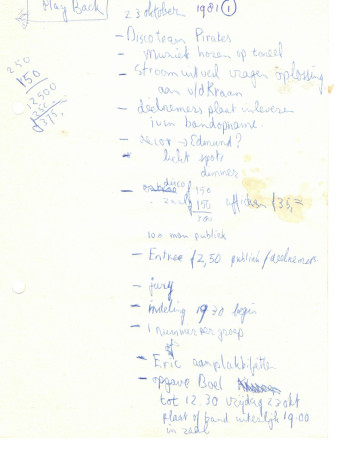 Play Back
23 oktober 1981 (1)
250
150
12,500
250
f 375,
- Discoteam Pirates
- Muziek boxen op toneel
- Stroom uitval vragen oplossing
aan v/d Kraan
- deelnemers plaat inleveren
ivm bandopname.
- decor → Edmund?
licht spots
dimmers
- disco f 150
zaal f 150 affiches f 35,=
300
100 man publiek
- Entree f 2,50 publiek/deelnemer
- jury
- indeling 19 30 begin
- 1 nummer per groep
- Eric aanplakbiljetten
- opgave Boel
tot 12.30 vrijdag 22 okt
plaat of band uiterlijk 19.00
in zaal